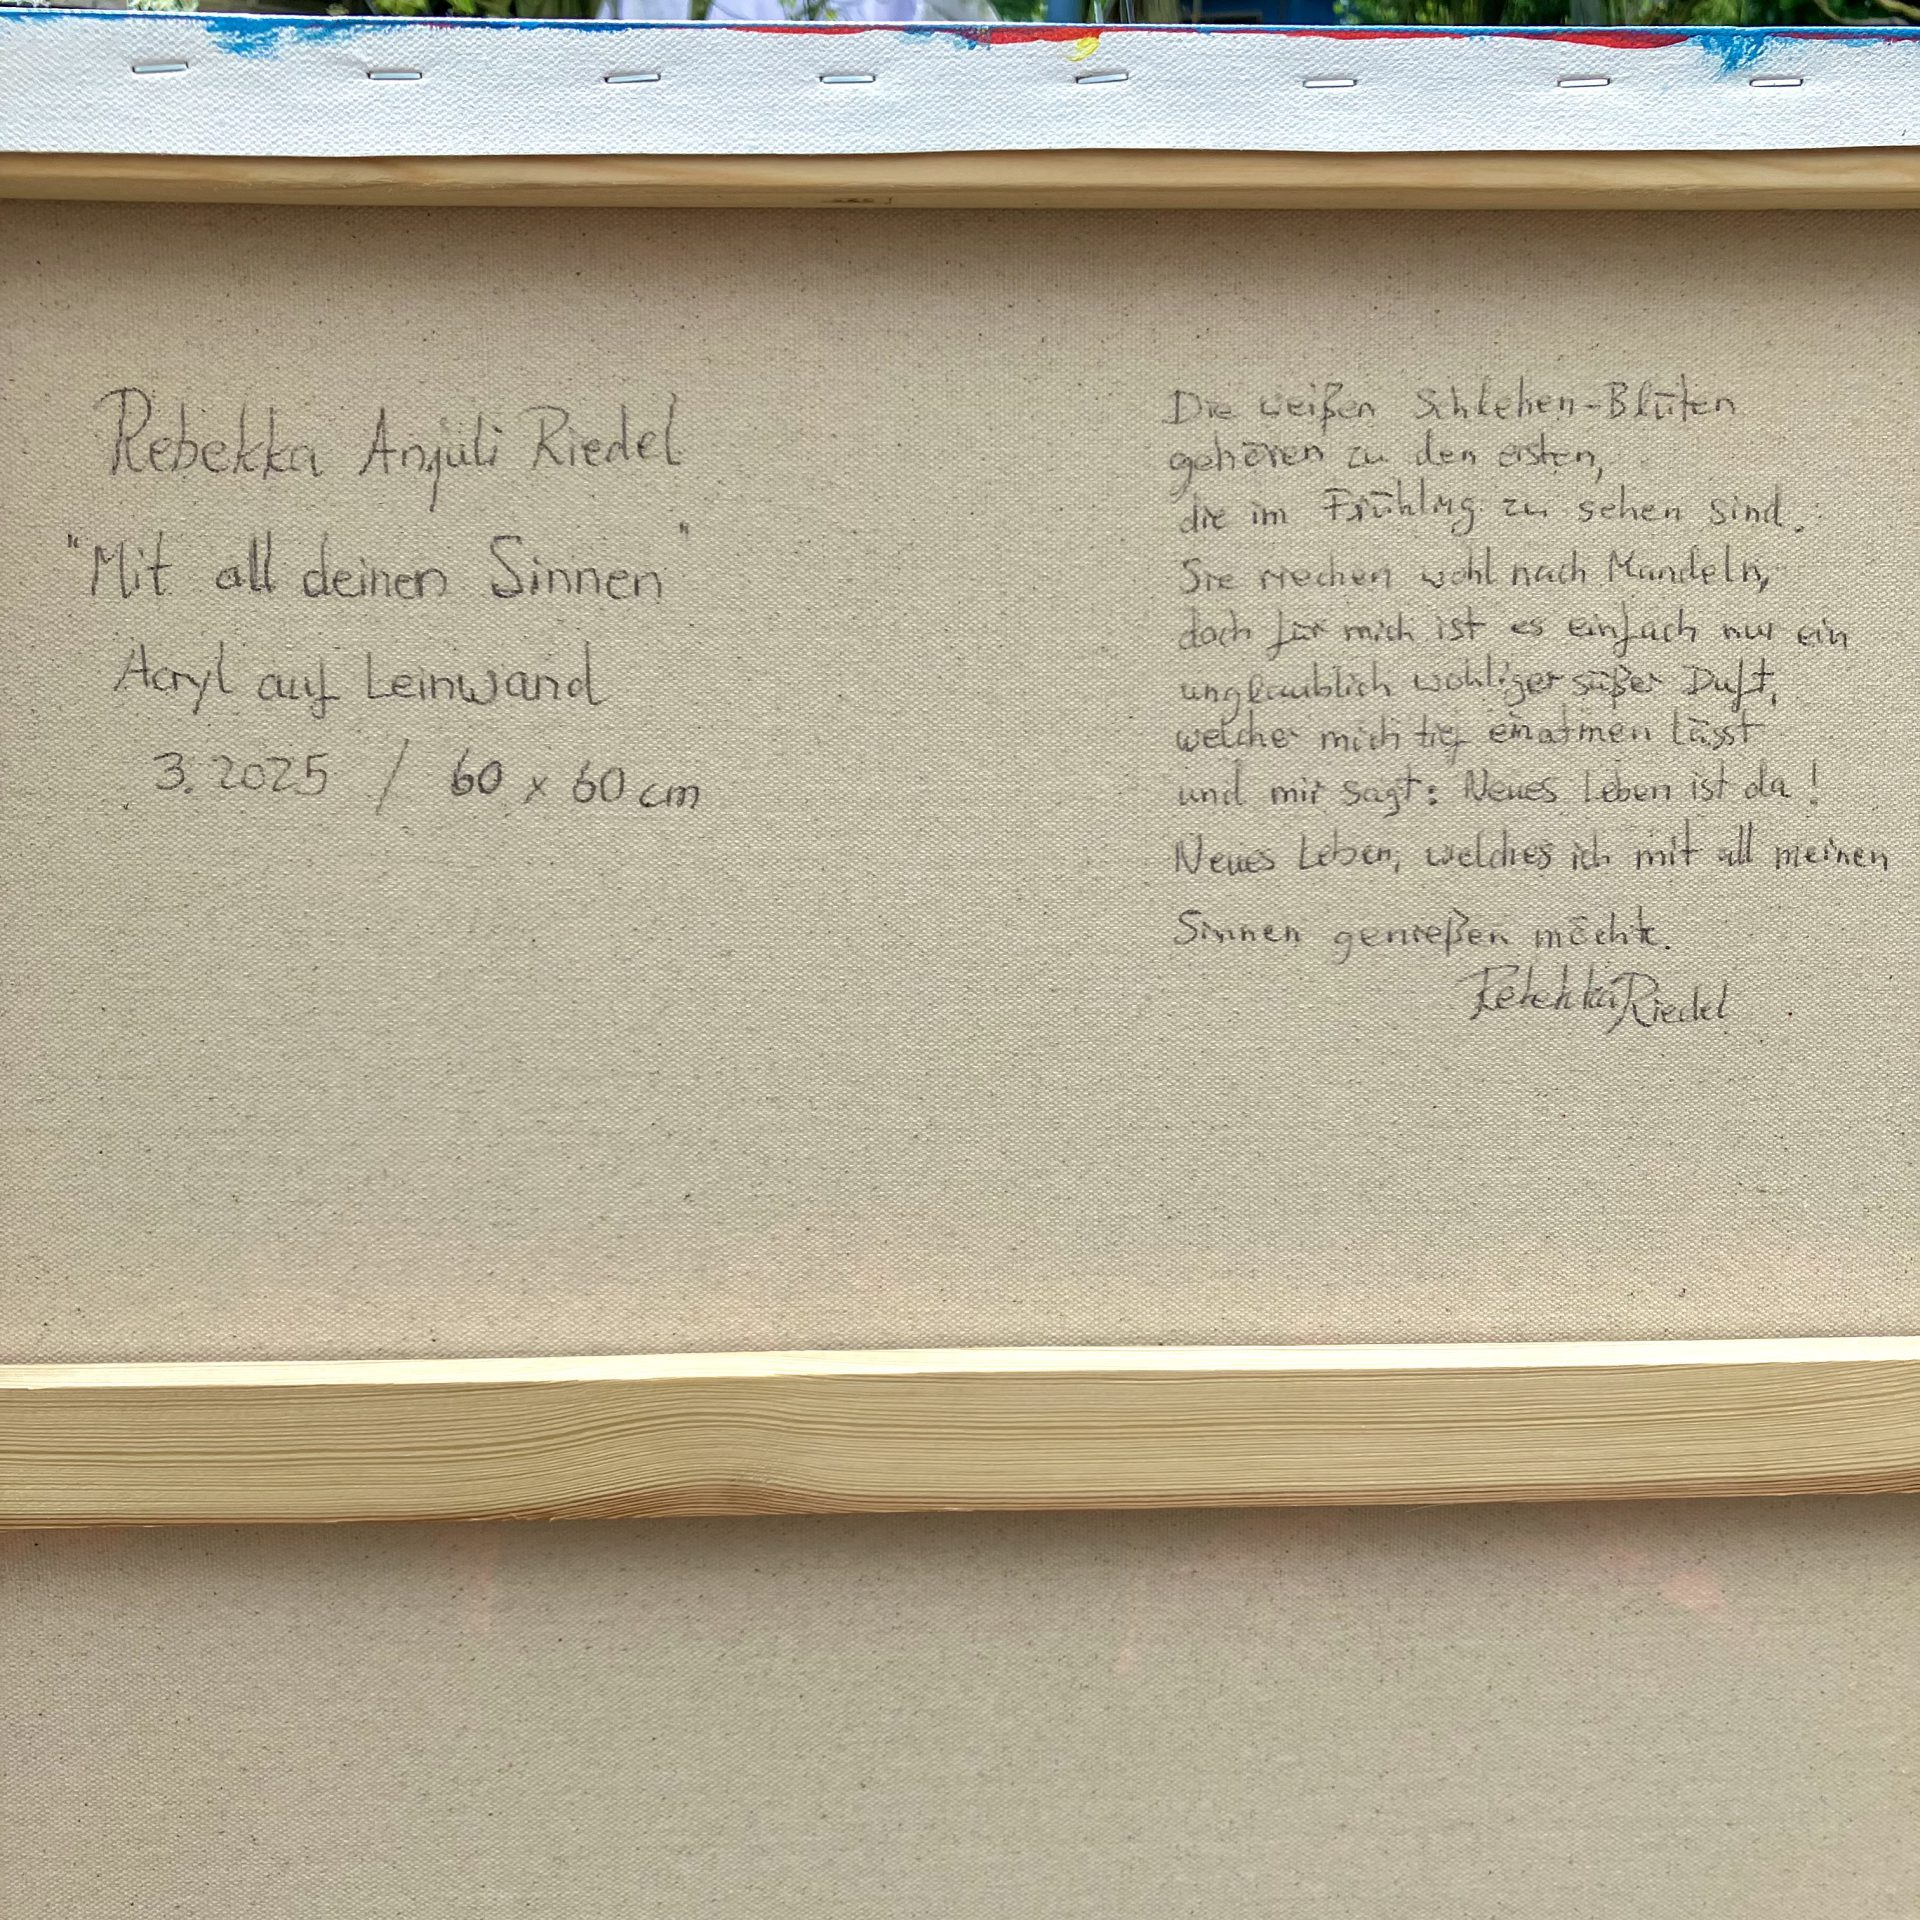 Rebekka Anjuli Riedel
"Mit all deinen Sinnen"
Acryl auf Leinwand
3. 2025 / 60 x 60 cm
Die weißen Schlehen-Blüten
gehören zu den ersten,
die im Frühling zu sehen sind.
Sie riechen wohl nach Mandeln,
doch für mich ist es einfach nur ein
unglaublich wohliger süßer Duft,
welcher mich tief einatmen lässt
und mir sagt: Neues Leben ist da!
Neues Leben, welches ich mit all meinen
Sinnen genießen möchte.
Rebekka Riedel